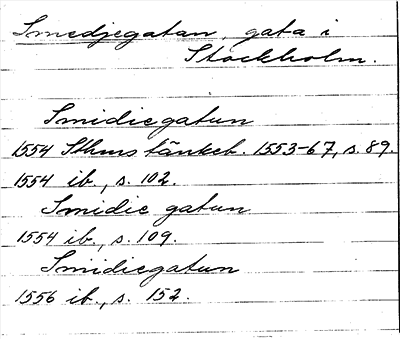 Smedjegatan, gata i
Stockholm.
Smidiegatun
1554 Sthms tänkeb. 1553-67, s. 89.
1554 ib., s. 102.
Smidie gatun
1554 ib., s. 109.
Smidiegatun
1556 ib., s. 152.